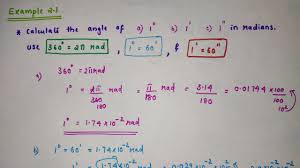 Example 2.1
* Calculate the angle of a) 1° b) 1' c) 1" in radians.
use 360° = 2π rad, 1° = 60', & 1' = 60"
a) 360° = 2π rad
1° = 2π/360 rad = π/180 rad = 3.14/180 = 0.01744 × 100/100
180 10²
1° = 1.74×10⁻² rad
b) 1° = 60' = 1.74×10⁻² rad